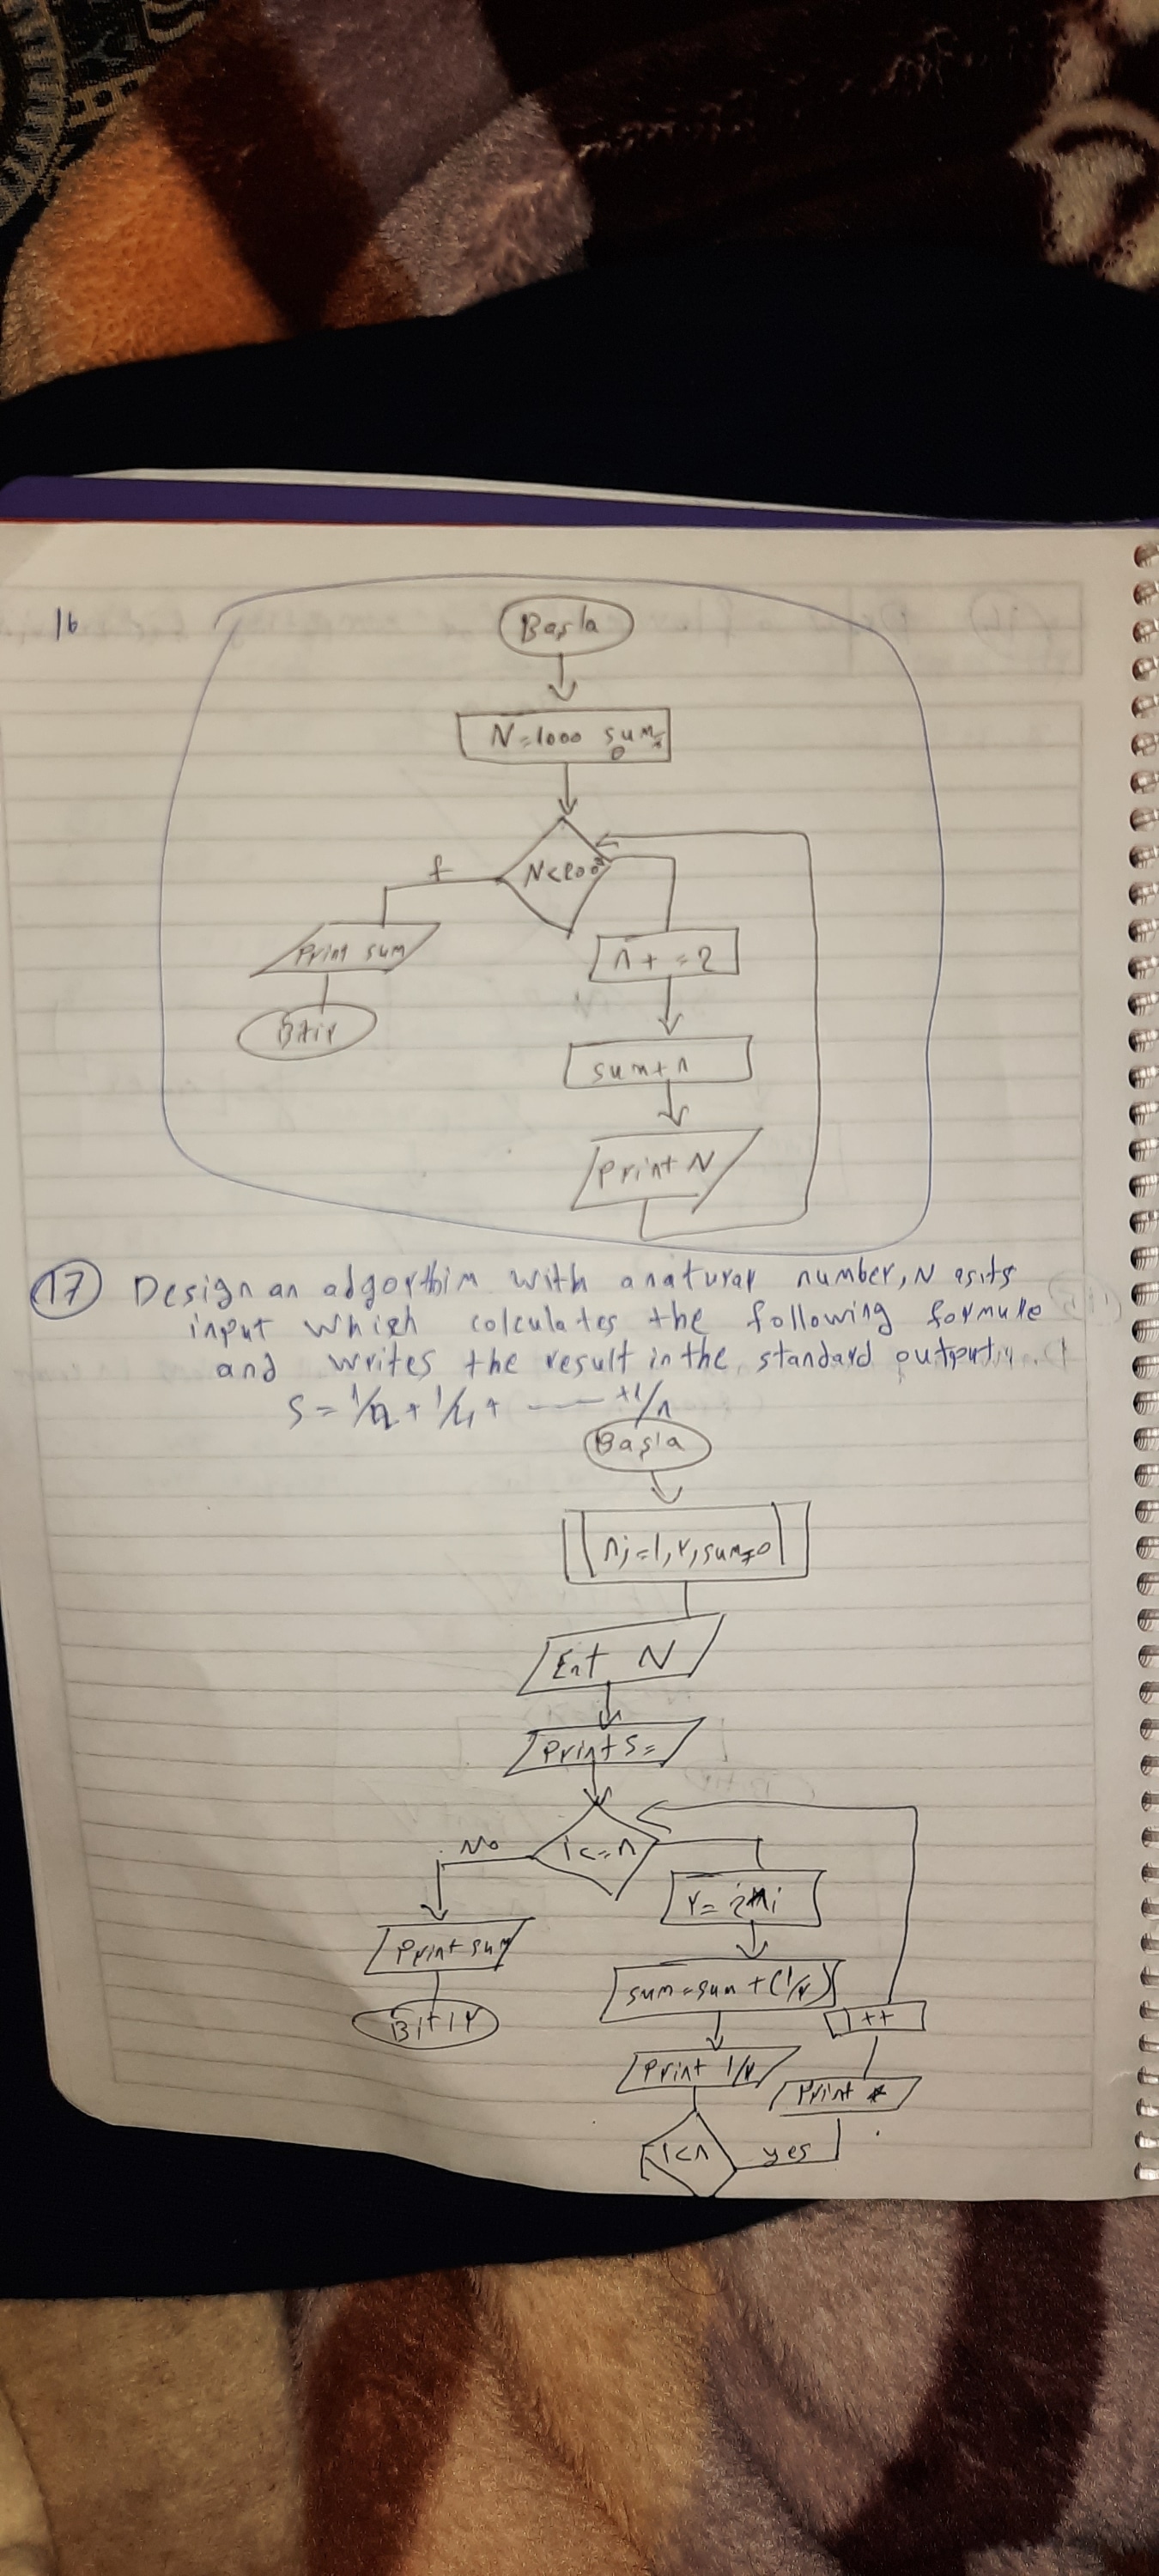 16
Başla
N=1000 sum=
0
N<2000
f
Print sum
n+=2
Bitir
sum+n
Print N
17 Design an adgorthim with a natural number, N as its
input which calculates the following formule
and writes the result in the standard output.
S = 1/2 + 1/4 + ---- +1/n
Başla
n,i=1,r,sum=0
Ent N
Print S=
No i<=n
r= 2*i
Print sum
sum=sum+(1/r)
Bitir
i++
Print 1/r
Print *
i<n yes